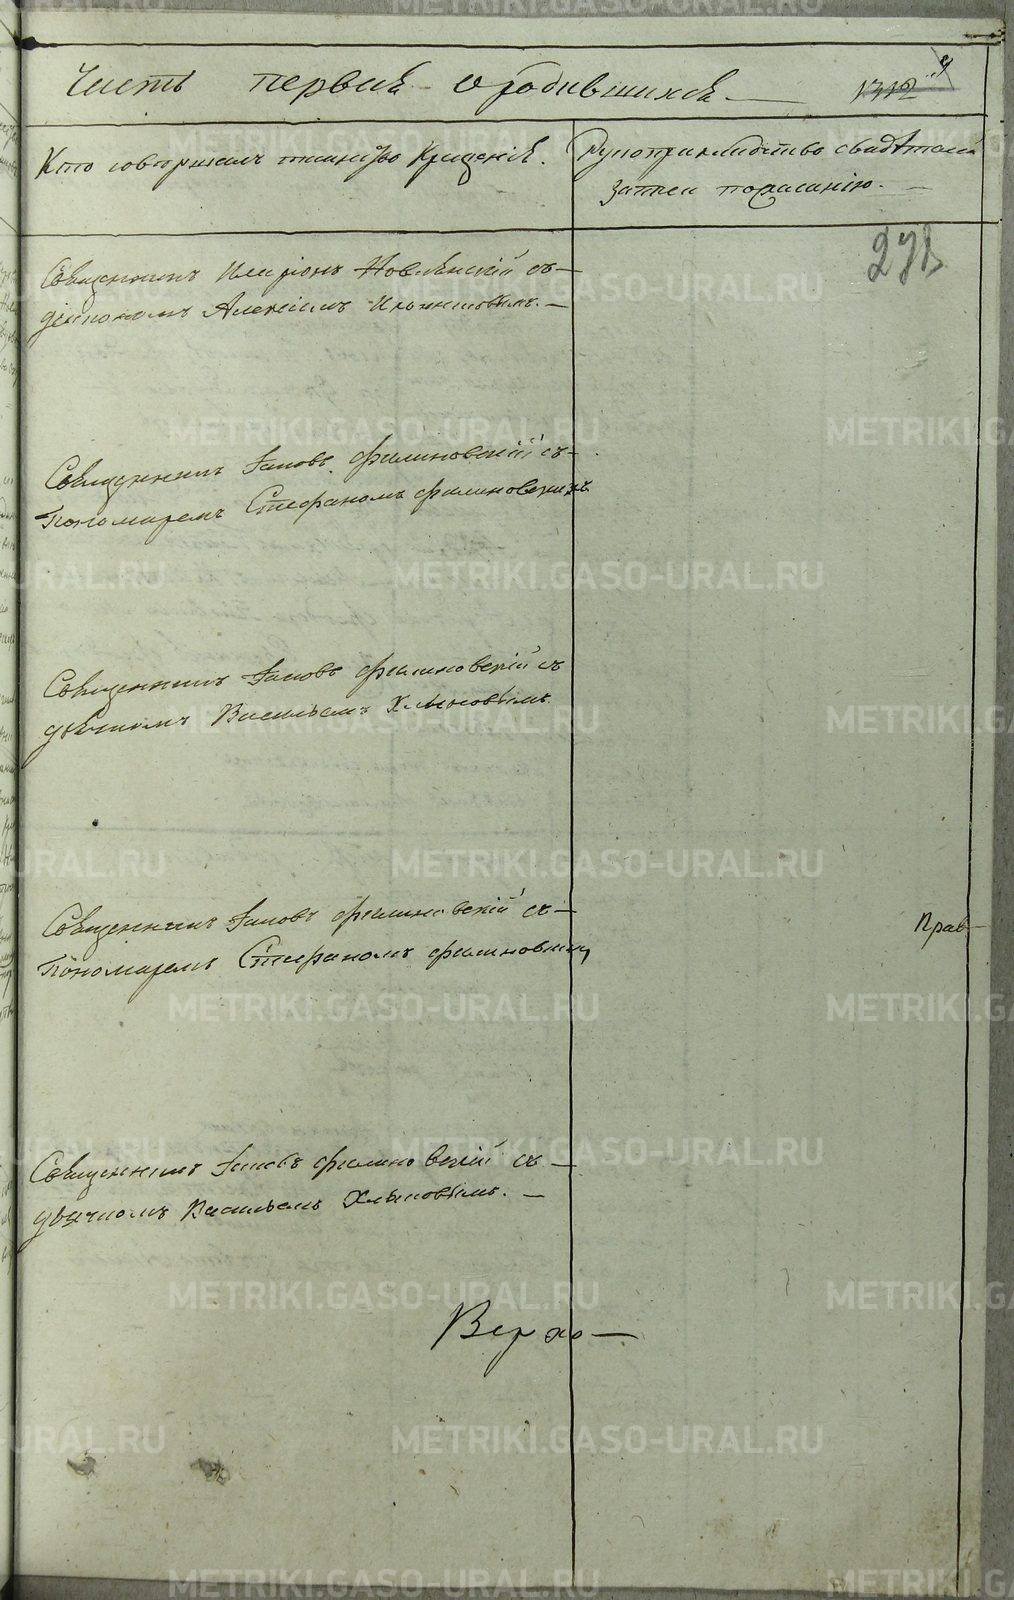 Часть первая о родившихся. 1312
Кто совершалъ таинство Крещенія.
Рукоприкладство свидѣтелей
записи по желанію.
278
Священникъ Иларіонъ Новлянскій съ
діакономъ Алексіемъ
Священникъ Іаковъ Филиновскій съ
Пономаремъ Стефаномъ Филиновскимъ
Священникъ Іаковъ Филиновскій съ
дьячкомъ Васильемъ Хлыновымъ.
Священникъ Іаковъ Филиновскій съ
Пономаремъ Стефаномъ Филиновским
Прав
Священникъ Іаковъ Филиновскій съ
дьячкомъ Васильемъ Хлыновымъ.
Верхо
METRIKI.GASO-URAL.RU